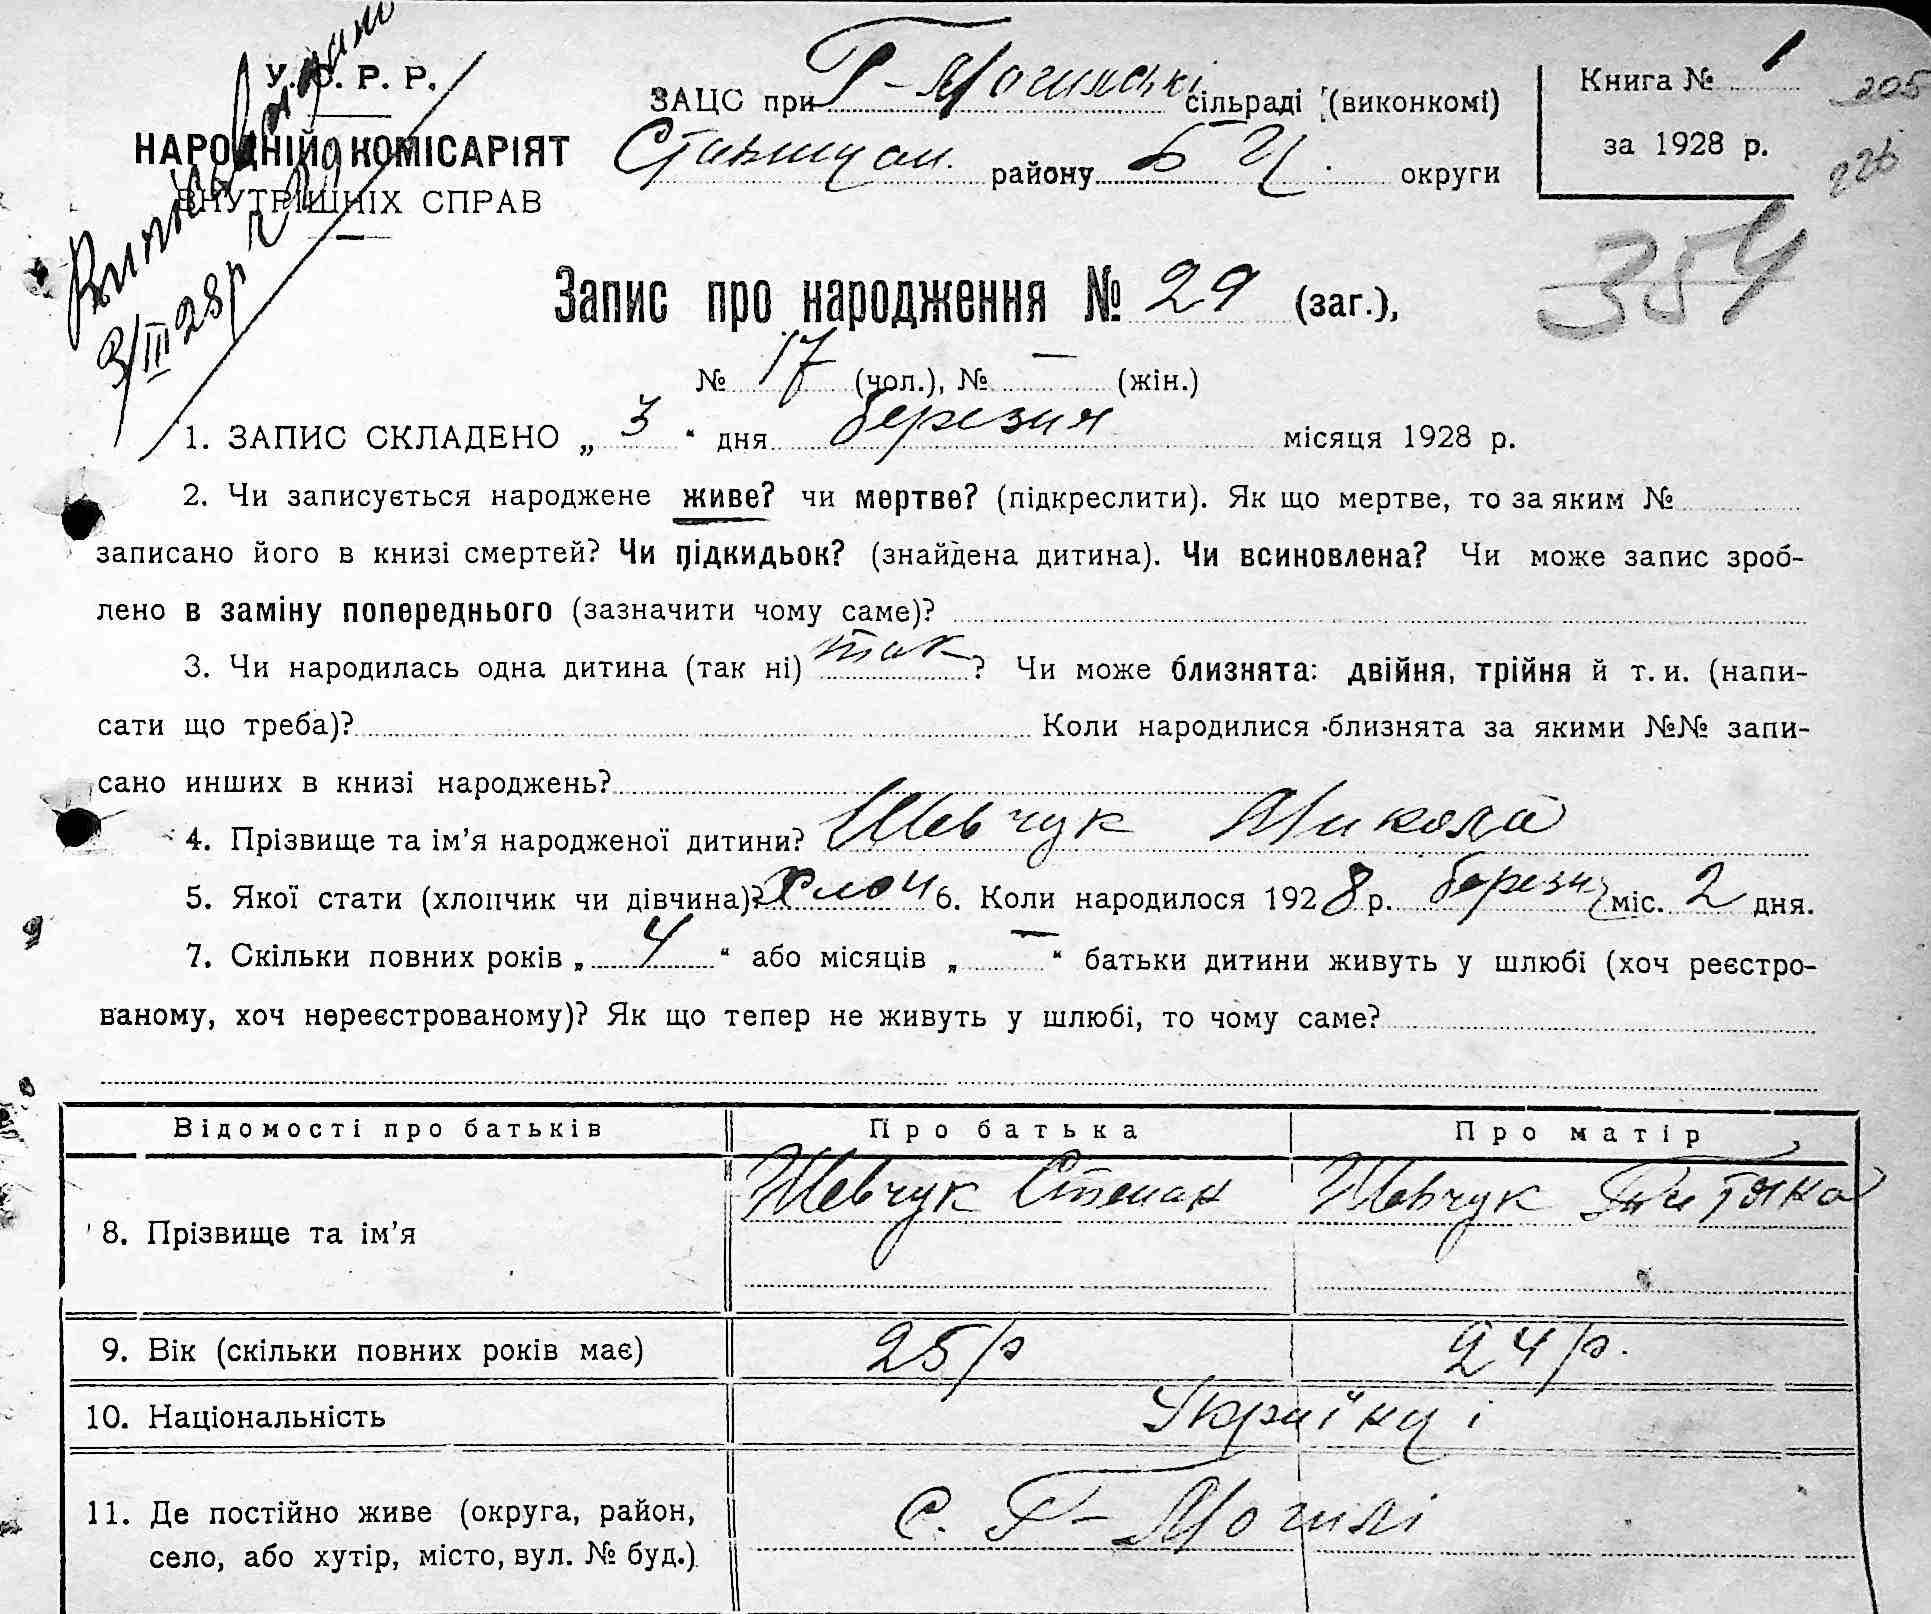 У.С.Р.Р.
НАРОДНІЙ КОМІСАРІЯТ
ВНУТРІШНІХ СПРАВ
3/III 28р
ЗАЦС при Г-Могилські сільраді (виконкомі)
Ставищан. району Б Ц. округи
Книга № 1
за 1928 р.
205
226
354
Запис про народження № 29 (заг.),
№ 17 (чол.), № — (жін.)
1. ЗАПИС СКЛАДЕНО „ 3 “ дня березня місяця 1928 р.
2. Чи записується народжене живе? чи мертве? (підкреслити). Як що мертве, то за яким №
записано його в книзі смертей? Чи підкидьок? (знайдена дитина). Чи всиновлена? Чи може запис зроб-
лено в заміну попереднього (зазначити чому саме)?
3. Чи народилась одна дитина (так ні) так ? Чи може близнята: двійня, трійня й т. и. (напи-
сати що треба)? Коли народилися близнята за якими №№ запи-
сано инших в книзі народжень?
4. Прізвище та ім’я народженої дитини? Шевчук Микола
5. Якої стати (хлопчик чи дівчина)? Хлоп 6. Коли народилося 1928 р. березн міс. 2 дня.
7. Скільки повних років „ 4 “ або місяців „ — “ батьки дитини живуть у шлюбі (хоч реєстро-
ваному, хоч нереєстрованому)? Як що тепер не живуть у шлюбі, то чому саме?
Відомості про батьків Про батька Про матір
8. Прізвище та ім’я Шевчук Степан Шевчук
9. Вік (скільки повних років має) 25/р 24/р.
10. Національність Українці
11. Де постійно живе (округа, район,
село, або хутір, місто, вул. № буд.) с. Г-Могилі